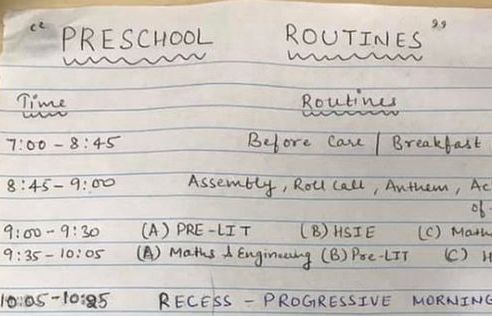 “ PRESCHOOL ROUTINES ”
Time Routines
7:00 - 8:45 Before Care | Breakfast
8:45 - 9:00 Assembly, Roll Call, Anthem, Ac
of
9:00 - 9:30 (A) PRE-LIT (B) HSIE (C) Math
9:35 - 10:05 (A) Maths & Engineering (B) Pre-LIT (C) H
RECESS - PROGRESSIVE MORNING